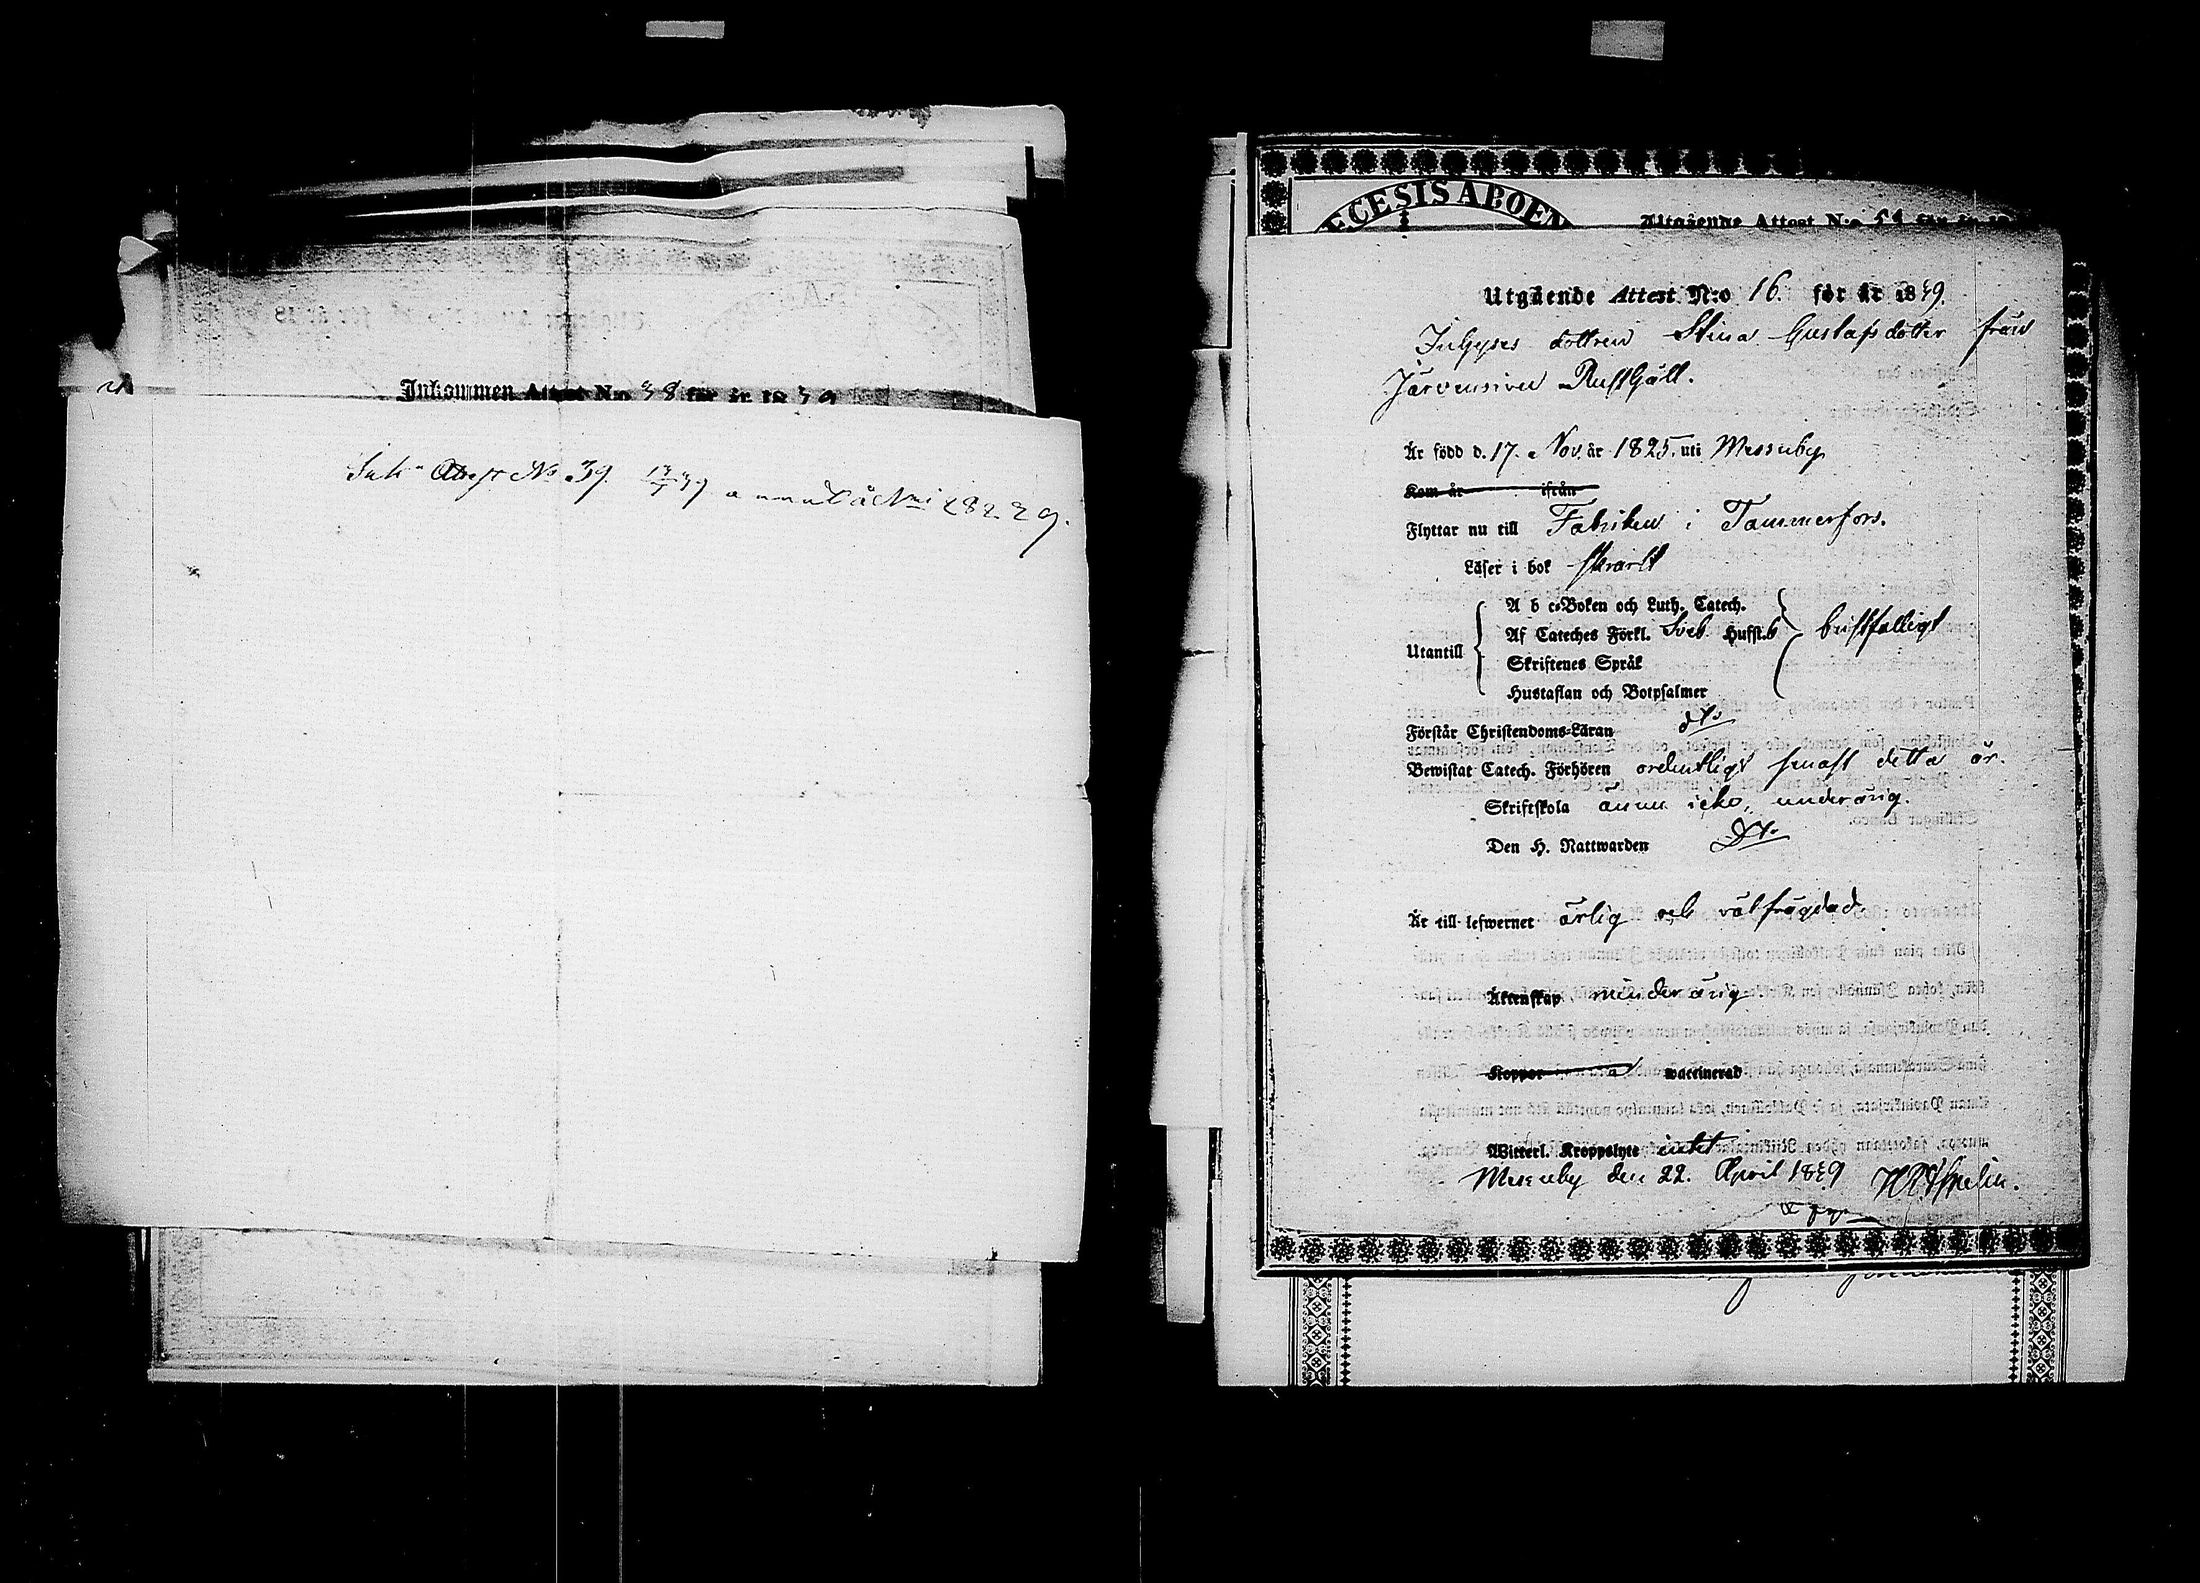 Inkommen Attest N:o 38 för år 1839
Ink. Attest No 39. 39
ECESIS ABOEN
Utgående Attest N:o för år 18
Utgående Attest N:o 16. för år 1839.
Inhyses dottren Stina Gustafsdotter från
Järvensivu Rusthåll.
Är född d. 17. Nov. år 1825. uti Messuby
Kom år ifrån
Flyttar nu till Fabriken i Tammerfors.
Läser i bok svarlt
A b c-Boken och Luth. Catech.
Af Cateches Förkl. Sveb. Hufst. 6 bristfälligt
Utantill
Skriftenes Språk
Hustaflan och Botpsalmer
Förstår Christendoms-Läran dto
Bewistat Catech. Förhören ordentligt senast detta år.
Skriftskola ännu icke, underårig.
Den H. Nattwarden Dto
Är till lefwernet ärlig och välfrägdad
Äktenskap minderårig
Koppor waccinerad
Witterl. Kroppslyte intet
Messuby den 22. April 1839